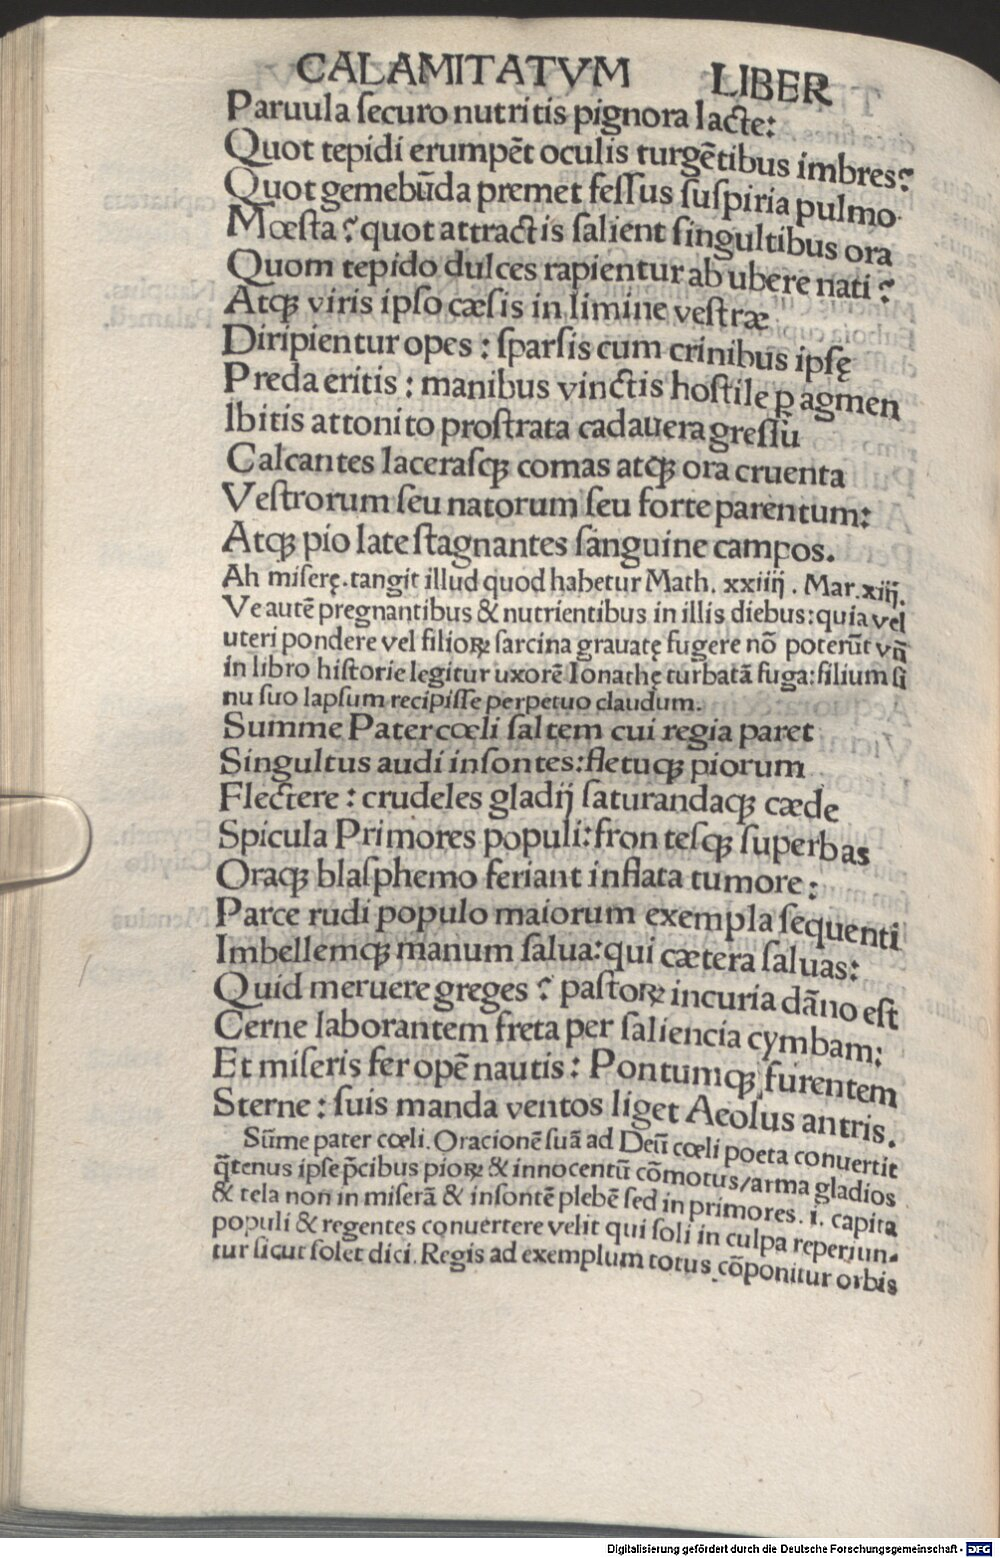 CALAMITATVM LIBER
Paruula ſecuro nutritis pignora lacte:
Quot tepidi erumpẽt oculis turgẽtibus imbres?
Quot gemebũda premet feſſus ſuſpiria pulmo
Mœſta? quot attractis ſalient ſingultibus ora
Quom tepido dulces rapientur ab ubere nati?
Atqꝫ viris ipſo cæſis in limine veſtræ
Diripientur opes: ſparſis cum crinibus ipſę
Preda eritis: manibus vinctis hoſtile ꝑ agmen
Ibitis attonito proſtrata cadauera greſſu
Calcantes laceraſqꝫ comas atqꝫ ora cruenta
Veſtrorum ſeu natorum ſeu forte parentum:
Atqꝫ pio late ſtagnantes ſanguine campos.
Ah miſerę. tangit illud quod habetur Math. xxiiij. Mar. xiij.
Ve autẽ pregnantibus & nutrientibus in illis diebus: quia vel
uteri pondere vel filioꝝ ſarcina grauatę fugere nõ poterũt vñ
in libro hiſtorie legitur uxorẽ Ionathę turbatã fuga: filium ſi
nu ſuo lapſum recipiſſe perpetuo claudum.
Summe Pater cœli ſaltem cui regia paret
Singultus audi inſontes: fletuqꝫ piorum
Flectere: crudeles gladij ſaturandaqꝫ cæde
Spicula Primores populi: fronteſqꝫ ſuperbas
Oraqꝫ blaſphemo feriant inflata tumore:
Parce rudi populo maiorum exempla ſequenti
Imbellemqꝫ manum ſalua: qui cætera ſaluas:
Quid meruere greges? paſtoꝝ incuria dãno eſt
Cerne laborantem freta per ſaliencia cymbam:
Et miſeris fer opẽ nautis: Pontumqꝫ furentem
Sterne: ſuis manda ventos liget Aeolus antris.
Sũme pater cœli. Oracionẽ ſuã ad Deũ cœli poeta conuertit
q̃tenus ipſe p̃cibus pioꝝ & innocentũ cõmotus/arma gladios
& tela non in miſerã & inſontẽ plebẽ ſed in primores. i. capita
populi & regentes conuertere velit qui ſoli in culpa reperiun-
tur ſicut ſolet dici. Regis ad exemplum totus cõponitur orbis
Digitalisierung gefördert durch die Deutsche Forschungsgemeinschaft - DFG